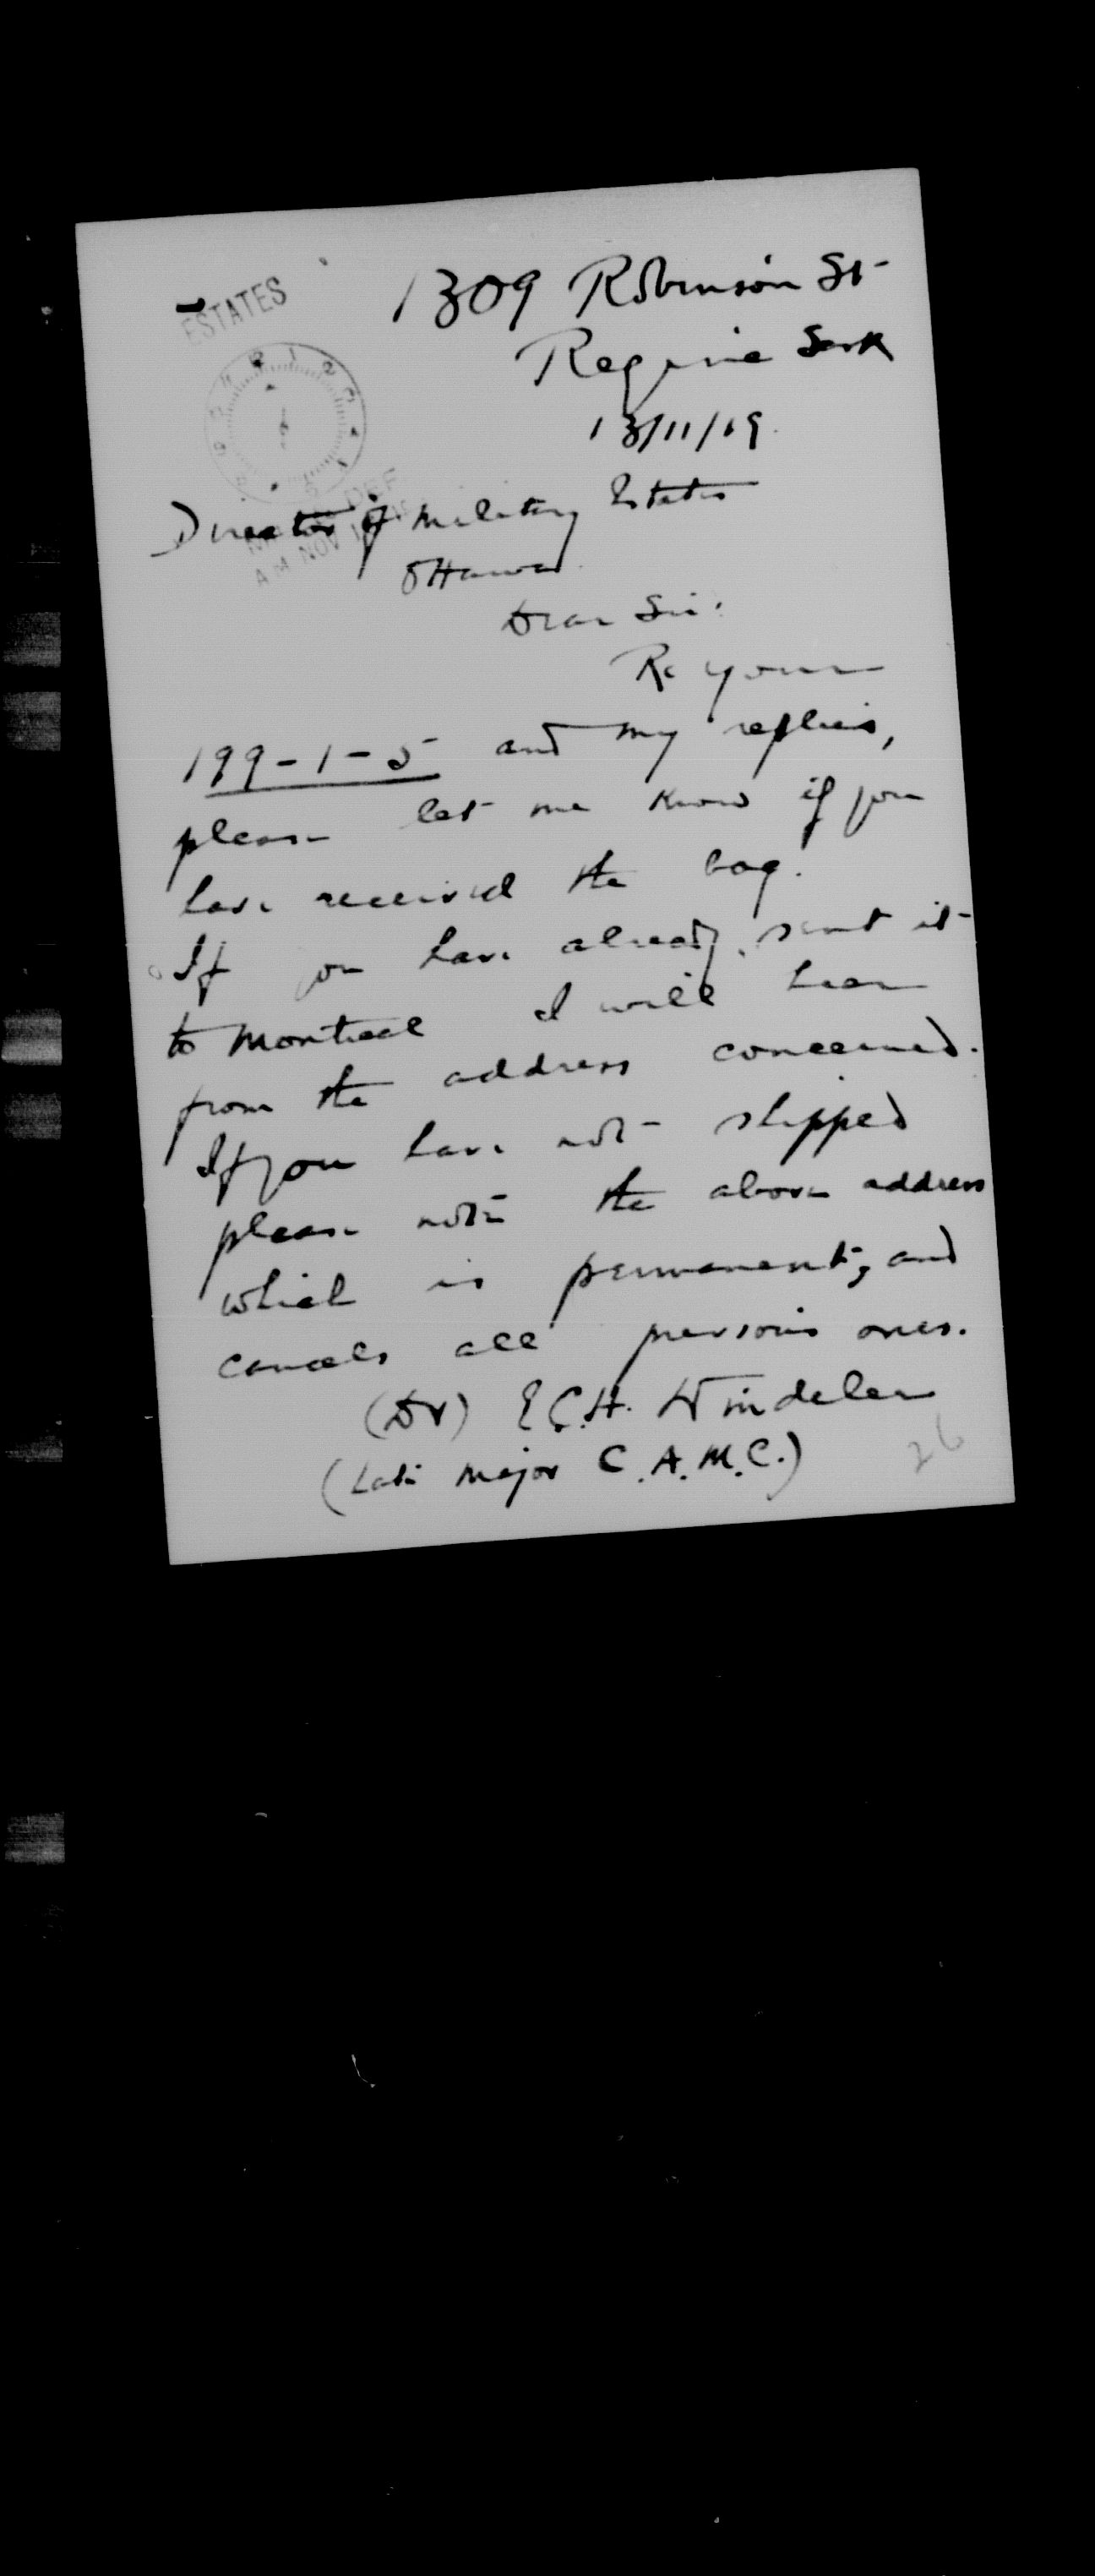 ESTATES
1309 Robinson St
Regina Sask
13/11/19.
Director of Military Estates
Ottawa.
Dear Sir:
Re yours
199-1-5 and my replies,
please let me know if you
have received the bag.
If you have already sent it
to Montreal I will hear
from the address concerned.
If you have not shipped
please note the above address
which is permanent, and
cancels all previous ones.
(Dr) E.C.H. Windeler
(Late Major C.A.M.C.)
26